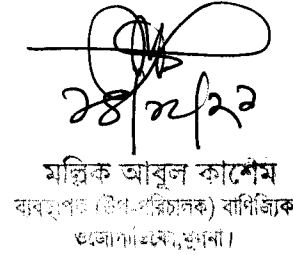 ২৪/১২/২১
মল্লিক আবুল কাশেম
ব্যবস্থাপক (উপ-পরিচালক) বাণিজ্যিক
ওজোপাডিকো,খুলনা।